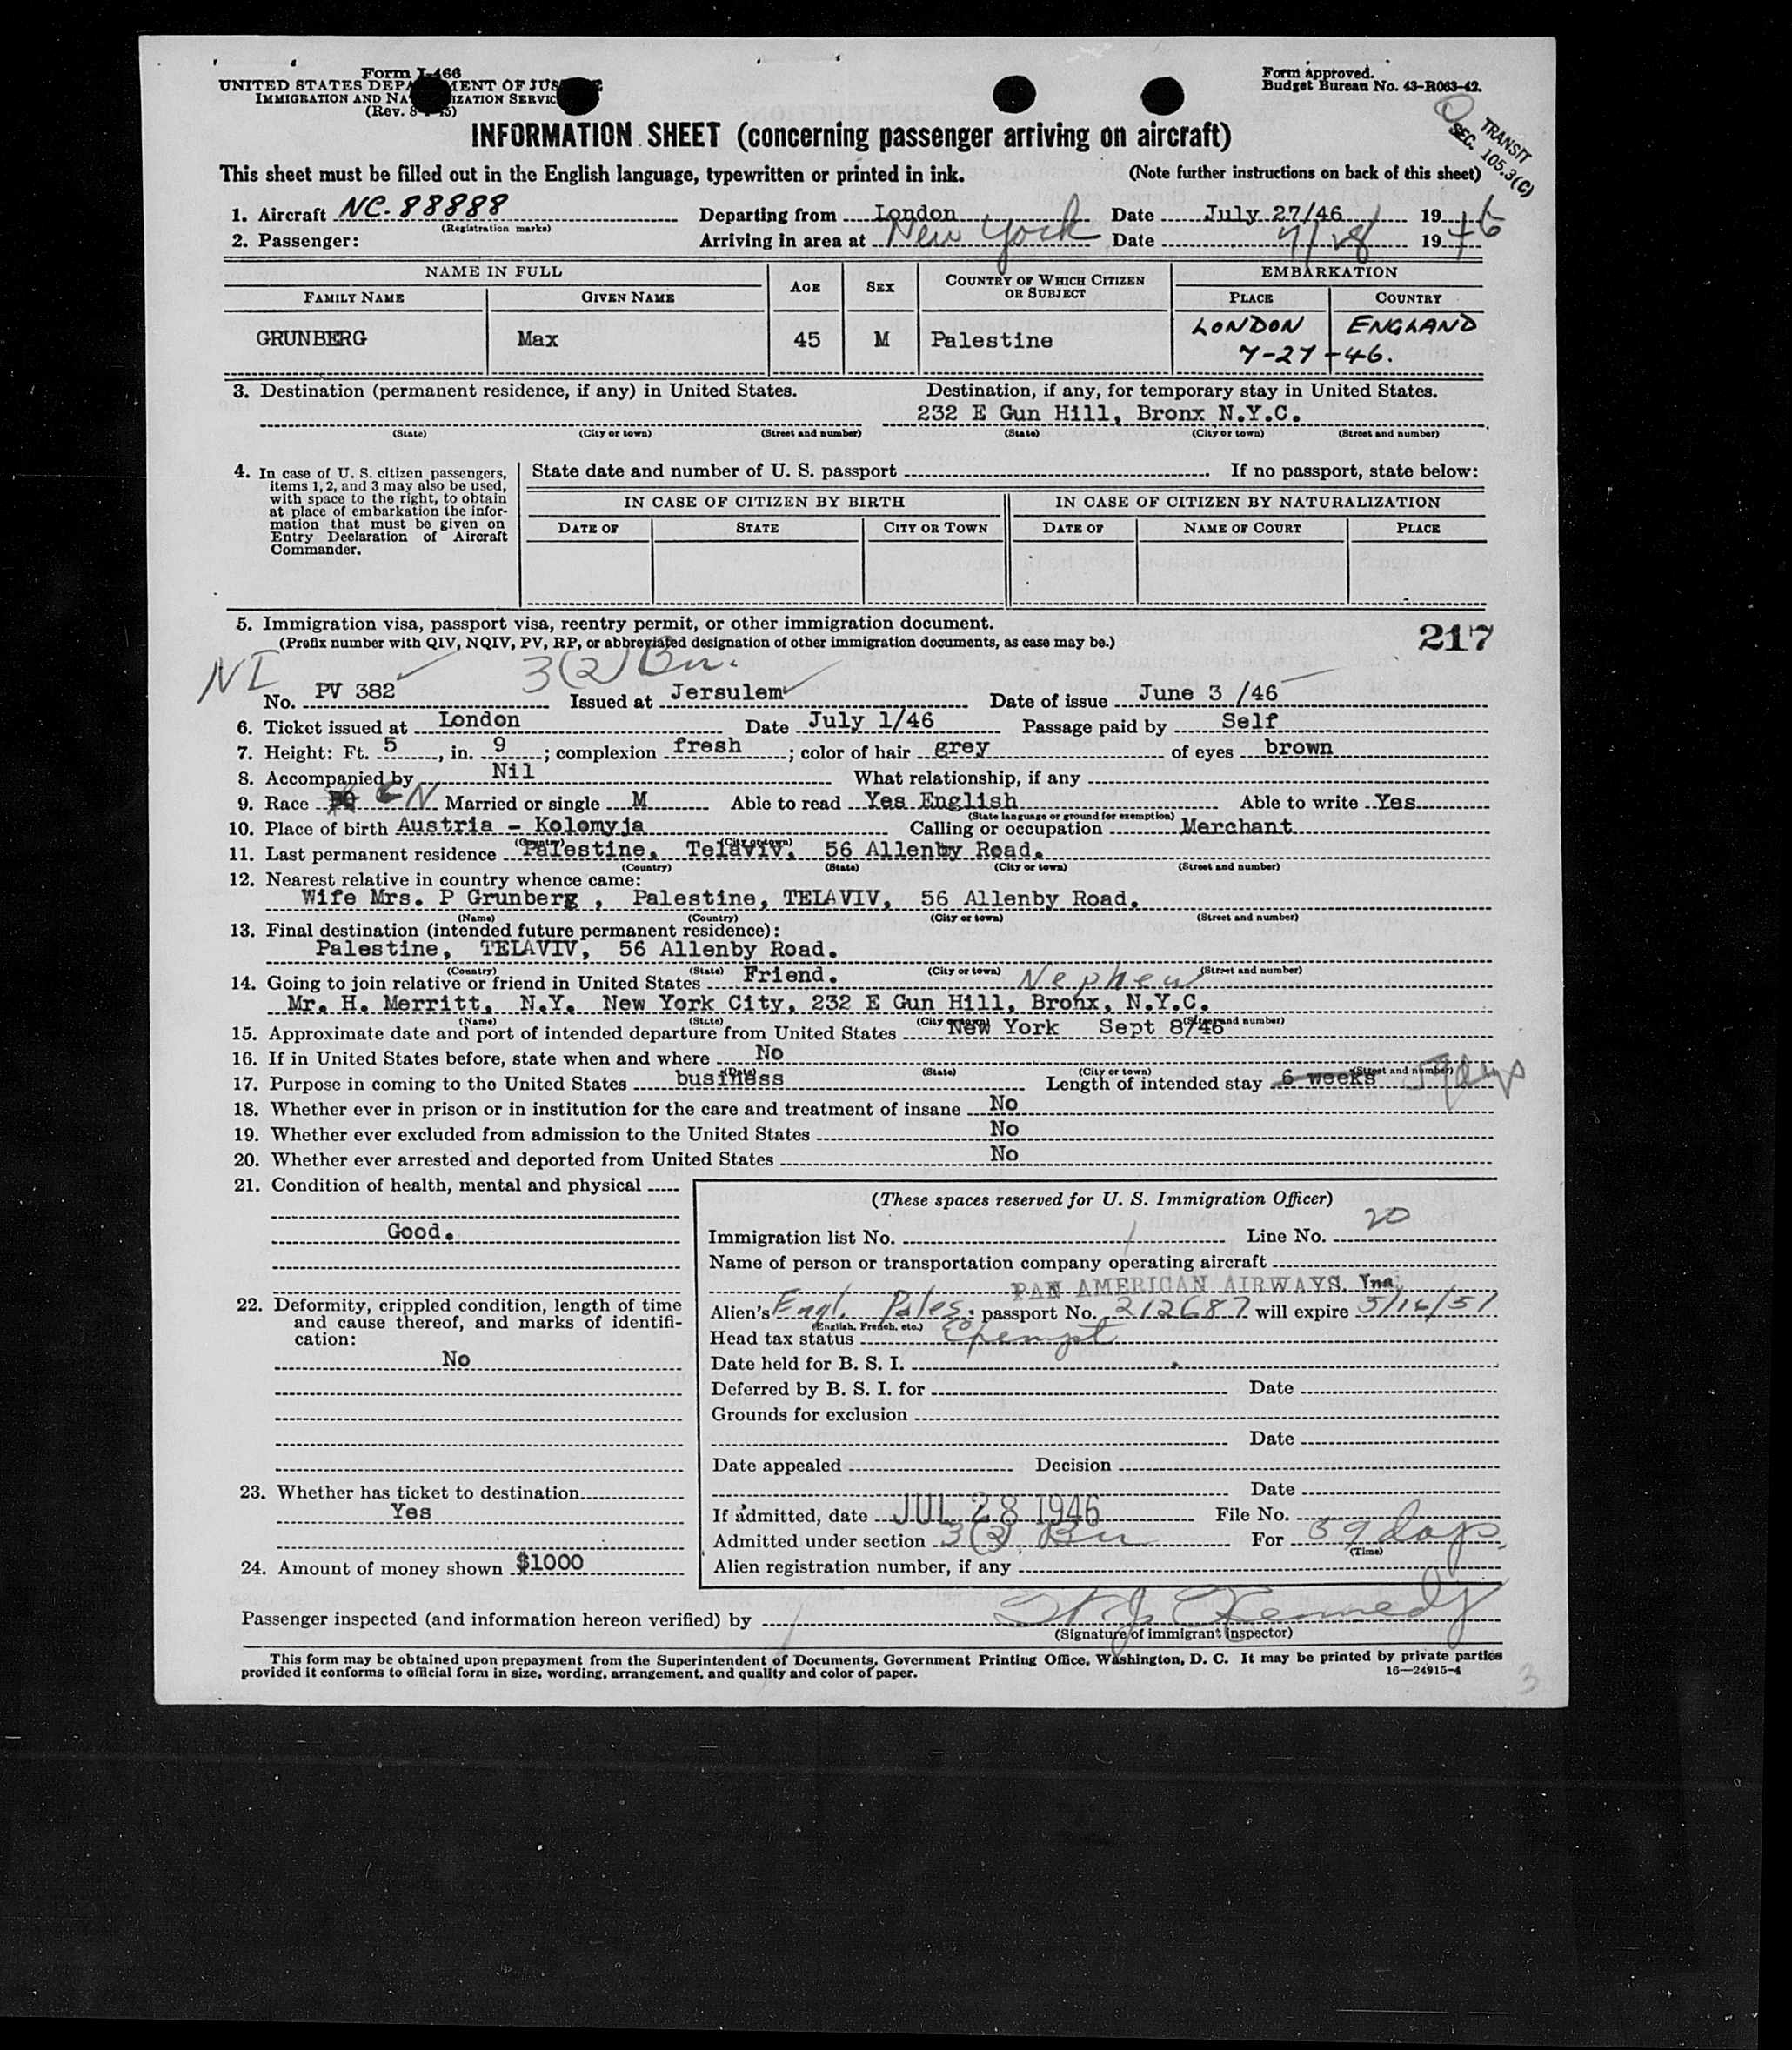 Form I-466
UNITED STATES DEPARTMENT OF JUSTICE
IMMIGRATION AND NATURALIZATION SERVICE
(Rev. 8-1-45)
Form approved.
Budget Bureau No. 43-R063-42.
TRANSIT
SEC. 105.3(C)
INFORMATION SHEET (concerning passenger arriving on aircraft)
This sheet must be filled out in the English language, typewritten or printed in ink. (Note further instructions on back of this sheet)
1. Aircraft NC-88888 Departing from London Date July 27/46 1946
(Registration marks)
2. Passenger: Arriving in area at New York Date 7/28 1946
NAME IN FULL AGE SEX COUNTRY OF WHICH CITIZEN OR SUBJECT EMBARKATION
FAMILY NAME GIVEN NAME PLACE COUNTRY
GRUNBERG Max 45 M Palestine LONDON ENGLAND
7-27-46.
3. Destination (permanent residence, if any) in United States. Destination, if any, for temporary stay in United States.
232 E Gun Hill, Bronx N.Y.C.
(State) (City or town) (Street and number) (State) (City or town) (Street and number)
4. In case of U. S. citizen passengers,
items 1, 2, and 3 may also be used,
with space to the right, to obtain
at place of embarkation the infor-
mation that must be given on
Entry Declaration of Aircraft
Commander.
State date and number of U. S. passport If no passport, state below:
IN CASE OF CITIZEN BY BIRTH IN CASE OF CITIZEN BY NATURALIZATION
DATE OF STATE CITY OR TOWN DATE OF NAME OF COURT PLACE
5. Immigration visa, passport visa, reentry permit, or other immigration document.
(Prefix number with QIV, NQIV, PV, RP, or abbreviated designation of other immigration documents, as case may be.) 217
NI 3(2) Bu.
No. PV 382 Issued at Jersulem Date of issue June 3 /46
6. Ticket issued at London Date July 1/46 Passage paid by Self
7. Height: Ft. 5, in. 9; complexion fresh; color of hair grey of eyes brown
8. Accompanied by Nil What relationship, if any
9. Race EN Married or single M Able to read Yes English Able to write Yes
(State language or ground for exemption)
10. Place of birth Austria - Kolomyja Calling or occupation Merchant
(Country) (City or town)
11. Last permanent residence Palestine, Telaviv, 56 Allenby Road.
(Country) (State) (City or town) (Street and number)
12. Nearest relative in country whence came:
Wife Mrs. P Grunberg , Palestine, TELAVIV, 56 Allenby Road.
(Name) (Country) (City or town) (Street and number)
13. Final destination (intended future permanent residence):
Palestine, TELAVIV, 56 Allenby Road.
(Country) (State) (City or town) (Street and number)
14. Going to join relative or friend in United States Friend. Nephew
Mr. H. Merritt, N.Y. New York City, 232 E Gun Hill, Bronx, N.Y.C.
(Name) (State) (City or town) (Street and number)
15. Approximate date and port of intended departure from United States New York Sept 8/46
16. If in United States before, state when and where No
(Date) (State) (City or town) (Street and number)
17. Purpose in coming to the United States business Length of intended stay 6 weeks days
18. Whether ever in prison or in institution for the care and treatment of insane No
19. Whether ever excluded from admission to the United States No
20. Whether ever arrested and deported from United States No
21. Condition of health, mental and physical
Good.
22. Deformity, crippled condition, length of time
and cause thereof, and marks of identifi-
cation:
No
23. Whether has ticket to destination
Yes
24. Amount of money shown $1000
(These spaces reserved for U. S. Immigration Officer)
Immigration list No. 1 Line No. 20
Name of person or transportation company operating aircraft
PAN AMERICAN AIRWAYS, Inc.
Alien's Engl. Pales. passport No. 212687 will expire 5/16/51
(English, French, etc.)
Head tax status Exempt
Date held for B. S. I.
Deferred by B. S. I. for Date
Grounds for exclusion
Date
Date appealed Decision
Date
If admitted, date JUL 28 1946 File No.
Admitted under section 3(2) Bu For 59 days
(Time)
Alien registration number, if any
Passenger inspected (and information hereon verified) by Kennedy
(Signature of immigrant inspector)
This form may be obtained upon prepayment from the Superintendent of Documents, Government Printing Office, Washington, D. C. It may be printed by private parties
provided it conforms to official form in size, wording, arrangement, and quality and color of paper. 16—24915-4
3